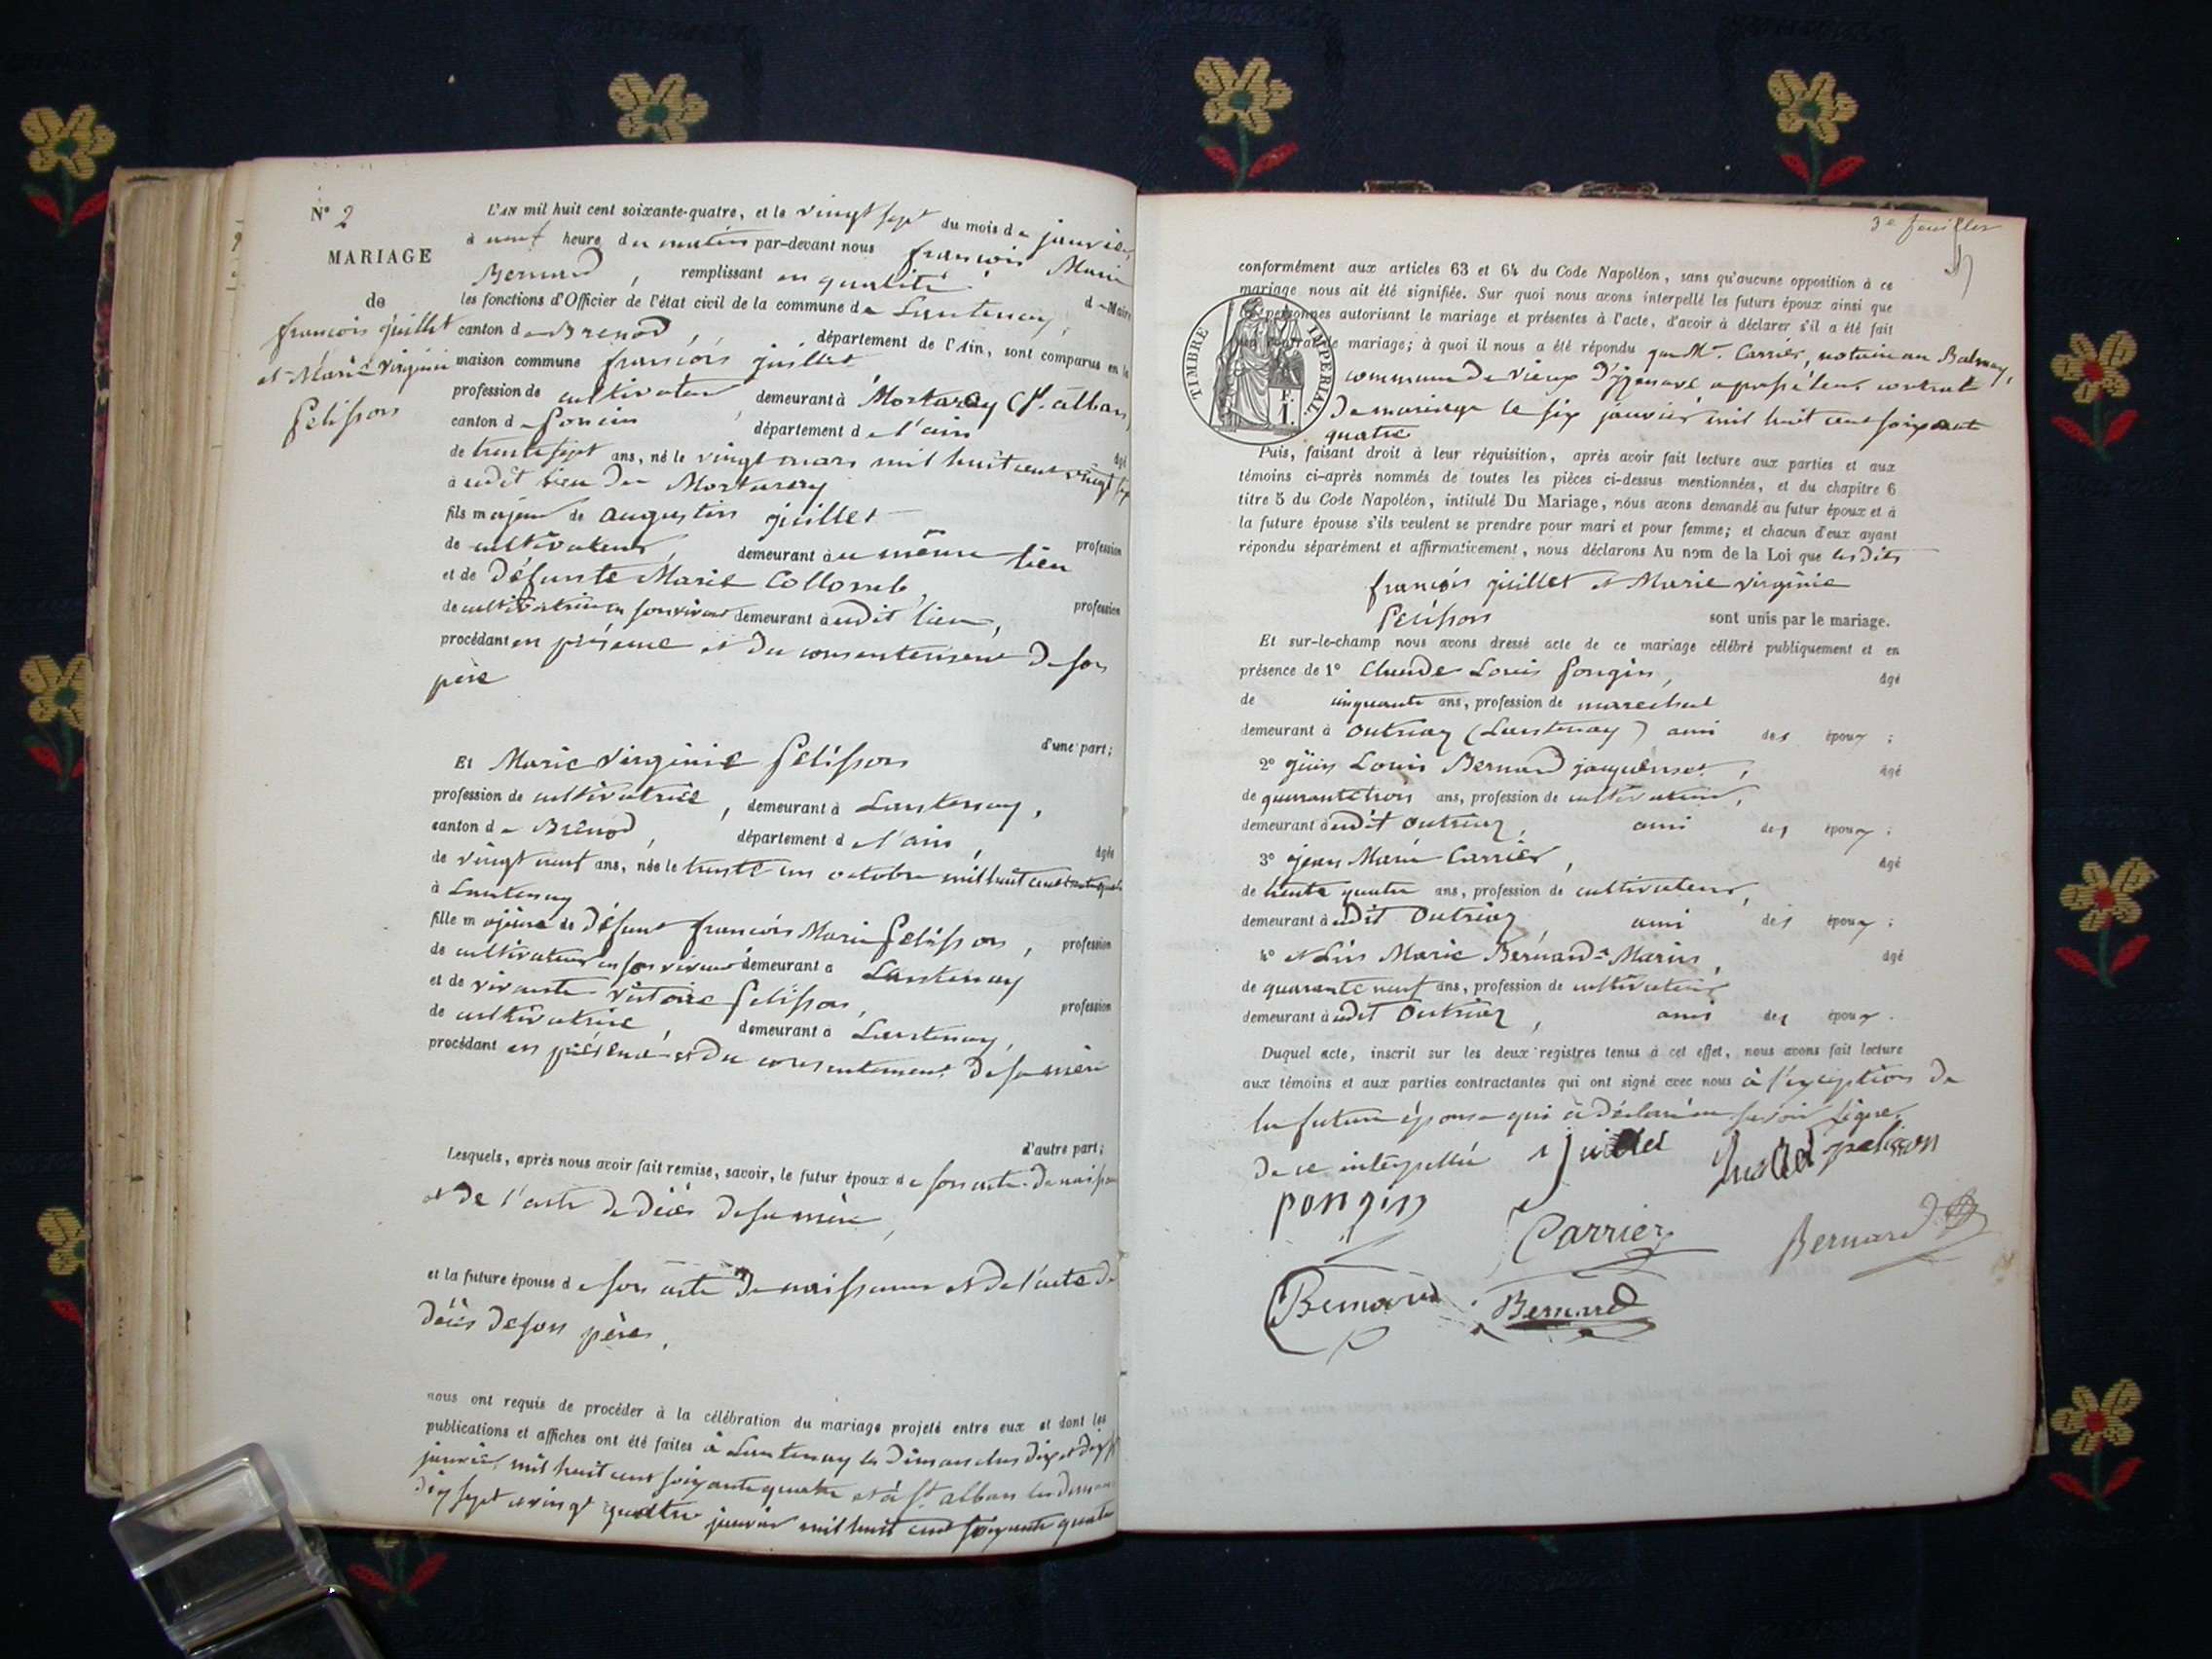 N° 2
MARIAGE
de
françois juillet
et Marie Virginie
Pelisson
L'AN mil huit cent soixante-quatre, et le vingt sept du mois de janvier,
à neuf heure du matin par-devant nous françois Marie
Bernard, remplissant en qualité de Maire
les fonctions d'Officier de l'état civil de la commune de Lantenay,
canton de Brenod, département de l'Ain, sont comparus en la
maison commune françois juillet
profession de cultivateur demeurant à Mortarey (St. alban)
canton de Poncin, département de l'ain âgé
de trente sept ans, né le vingt mars mil huit cent vingt six
à udit lieu de Mortarey
fils majeur de augustin juillet profession
de cultivateur, demeurant à u même lieu
et de défunte Marie Collomb, profession
de cultivatrice en son vivant demeurant à udit lieu,
procédant en présence et du consentement de son
père
d'une part;
Et Marie Virginie Pelisson
profession de cultivatrice, demeurant à Lantenay,
canton de Brénod, département de l'ain, âgée
de vingt neuf ans, née le trente un octobre mil huit cent trente quatre
à Lantenay
fille majeure de défunt françois Marie Pelisson, profession
de cultivateur en son vivant demeurant à Lantenay
et de vivante victoire Pelisson, profession
de cultivatrice, demeurant à Lantenay,
procédant en présence et du consentement de sa mère
d'autre part;
Lesquels, après nous avoir fait remise, savoir, le futur époux de son acte de naissance
et de l'acte de décès de sa mère,
et la future épouse de son acte de naissance et de l'acte de
décès de son père,
nous ont requis de procéder à la célébration du mariage projeté entre eux et dont les
publications et affiches ont été faites à Lantenay les dimanches dix et dix sept
janvier mil huit cent soixante quatre et à St alban les dimanches
dix sept et vingt quatre janvier mil huit cent soixante quatre
3e feuillet
conformément aux articles 63 et 64 du Code Napoléon, sans qu'aucune opposition à ce
mariage nous ait été signifiée. Sur quoi nous avons interpellé les futurs époux ainsi que
personnes autorisant le mariage et présentes à l'acte, d'avoir à déclarer s'il a été fait
un contrat de mariage; à quoi il nous a été répondu que Mr. Carrier, notaire au Balmay,
commune de Vieux d'Izenave a passé leur contrat
de mariage le six janvier mil huit cent soixante
quatre
TIMBRE IMPÉRIAL
Puis, faisant droit à leur réquisition, après avoir fait lecture aux parties et aux
témoins ci-après nommés de toutes les pièces ci-dessus mentionnées, et du chapitre 6
titre 5 du Code Napoléon, intitulé Du Mariage, nous avons demandé au futur époux et à
la future épouse s'ils veulent se prendre pour mari et pour femme; et chacun d'eux ayant
répondu séparément et affirmativement, nous déclarons Au nom de la Loi que les dits
françois juillet et Marie virginie
Pelisson sont unis par le mariage.
Et sur-le-champ nous avons dressé acte de ce mariage célébré publiquement et en
présence de 1° Claude Louis Pongin, âgé
de cinquante ans, profession de marechal
demeurant à Outriaz (Lantenay) ami des époux;
2° Louis Bernard jacquemet, âgé
de quarante trois ans, profession de cultivateur,
demeurant à udit Outriaz, ami des époux;
3° jean Marie Carrier, âgé
de trente quatre ans, profession de cultivateur,
demeurant à udit Outriaz, ami des époux;
4° et Marie Bernard-Marin, âgé
de quarante neuf ans, profession de cultivateur
demeurant à udit Outriaz, ami des époux.
Duquel acte, inscrit sur les deux registres tenus à cet effet, nous avons fait lecture
aux témoins et aux parties contractantes qui ont signé avec nous à l'exception de
la future épouse qui a déclaré ne savoir signer
de ce interpellée juillet juillet pelisson
pongin
Carrier Bernard
Bernard Bernard